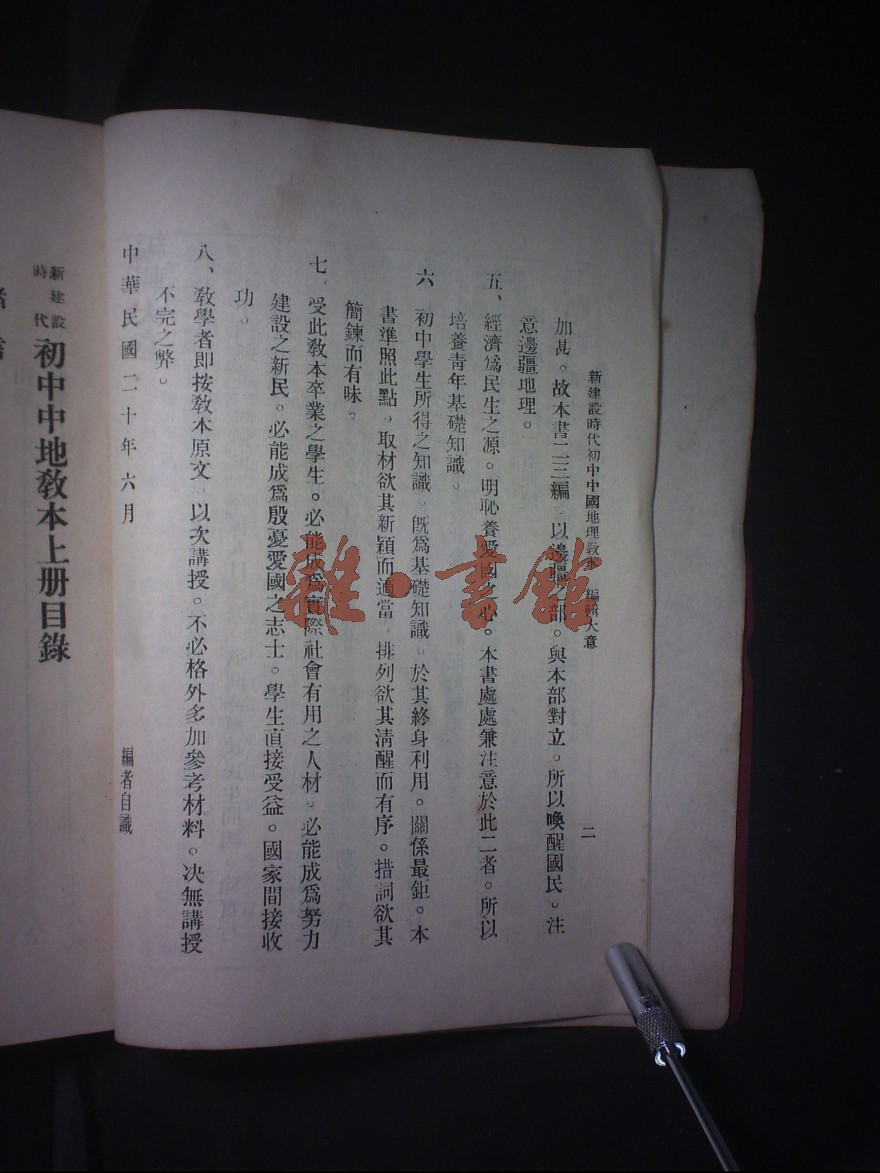 新建設時代初中中國地理教本　編輯大意
二
加甚。故本書二三編。以邊疆之部。與本部對立。所以喚醒國民。注
意邊疆地理。
五、經濟爲民生之源。明恥養愛國之心。本書處處兼注意於此二者。所以
培養青年基礎知識。
六　初中學生所得之知識。旣爲基礎知識。於其終身利用。關係最鉅。本
書準照此點。取材欲其新穎而適當　排列欲其淸醒而有序。措詞欲其
簡鍊而有味。
七、受此敎本卒業之學生。必能成爲實際社會有用之人材。必能成爲努力
建設之新民。必能成爲殷憂愛國之志士。學生直接受益。國家間接收
功。
八、敎學者即按敎本原文　以次講授。不必格外多加參考材料。決無講授
不完之弊。
中華民國二十年六月
編者自識
新建設時代　初中中地敎本上册目錄
雜·書館